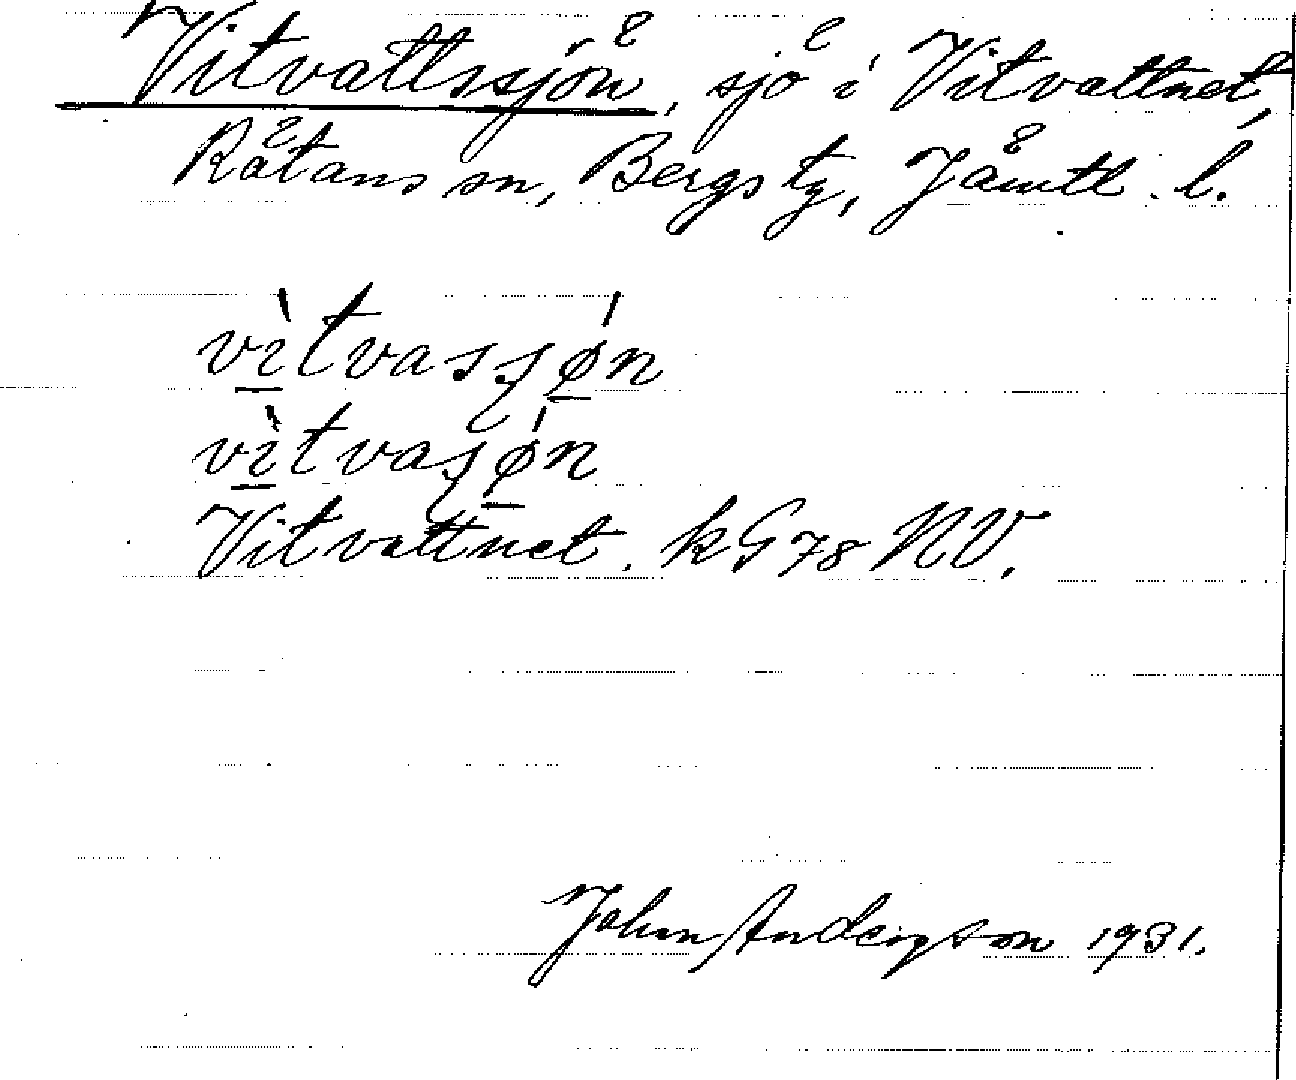 Vitvattssjön, sjö i Vitvattnet,
Rätans sn, Bergs tg, Jämtl. l.
vìtvassʃǿn
vìtvaʃǿn
Vitvattnet. kG78NV.
John Andersson 1931.